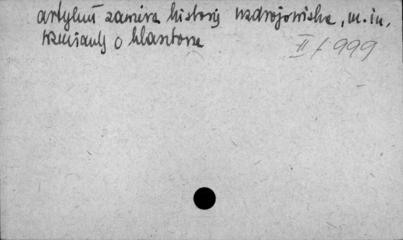 artykuł zawiera historię uzdrojowiska, m.in.
wzmianki o klasztorze
II/999